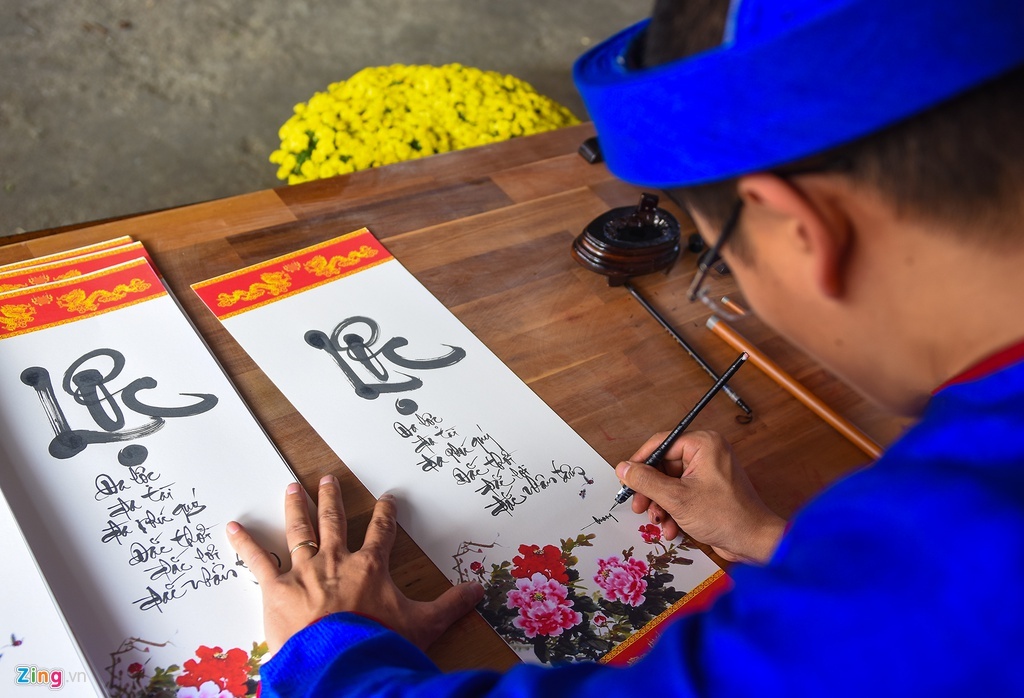 Lộc
Đa lộc
Đa tài
Đa phú quý
Đắc thời
Đắc lợi
Đắc nhân
Lộc
Đa lộc
Đa tài
Đa phú quý
Đắc thời
Đắc lợi
Đắc nhân tâm
Zing.vn